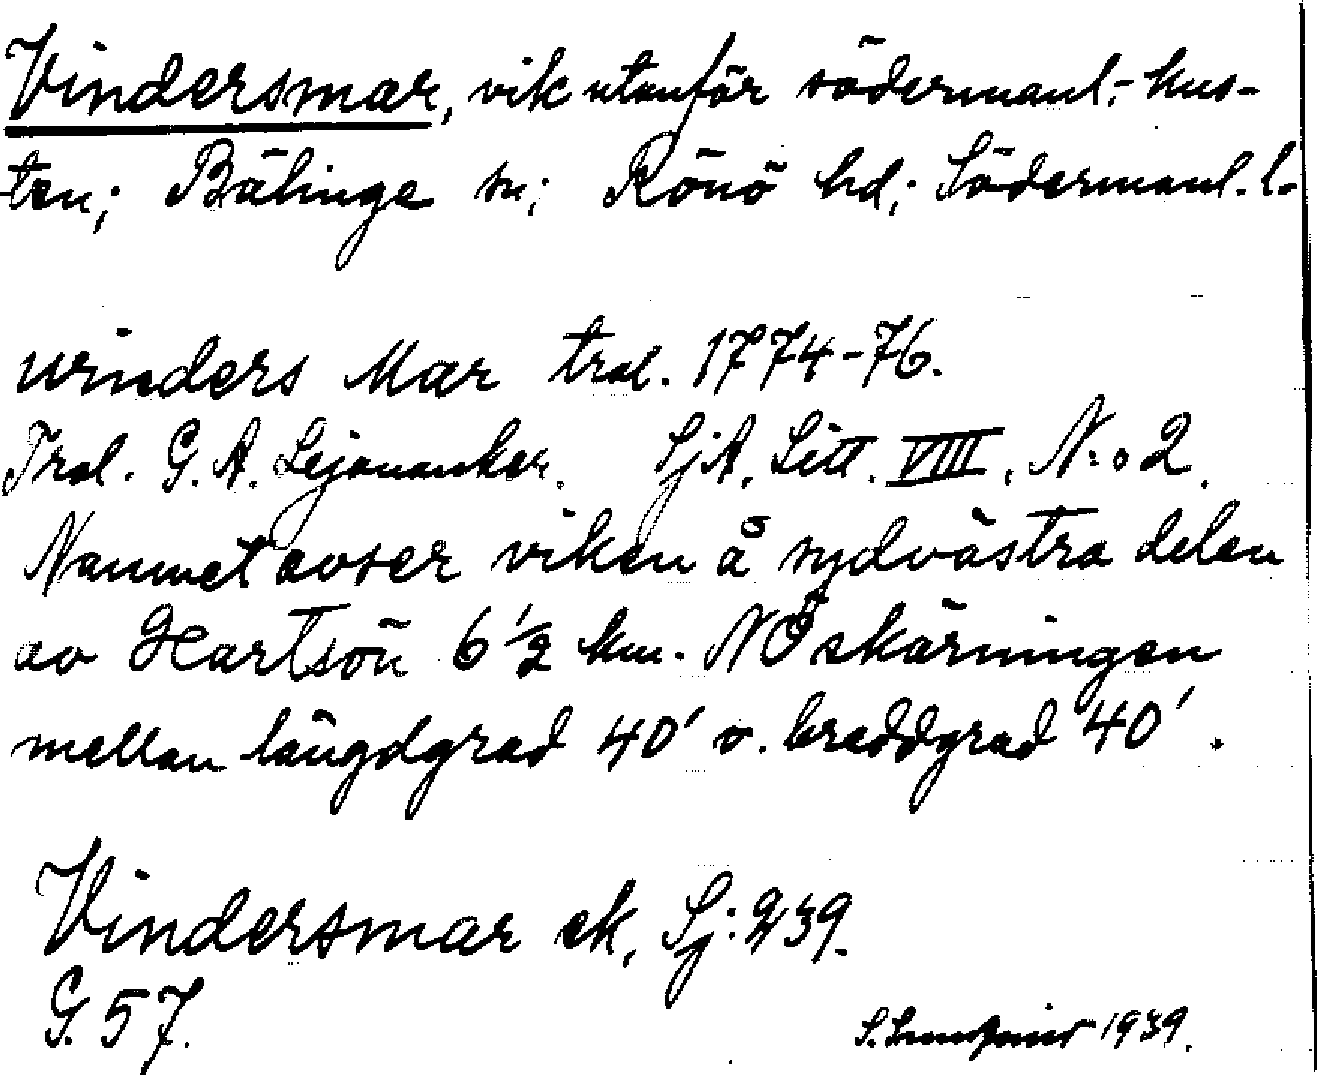 Vindersmar, vik utanför södermanl.-kus-
ten; Bälinge sn; Rönö hd; Södermanl. l.
winders Mar tral. 1774-76.
Tral. G. A. Lejonanker. SjA. Litt. VIII. N:o 2.
Namnet avser viken å sydvästra delen
av Hartsön 6 1/2 km. NÖ skärningen
mellan längdgrad 40' o. breddgrad 40'.
Vindersmar ek, Sj: 939.
G. 57.
S. 1939.